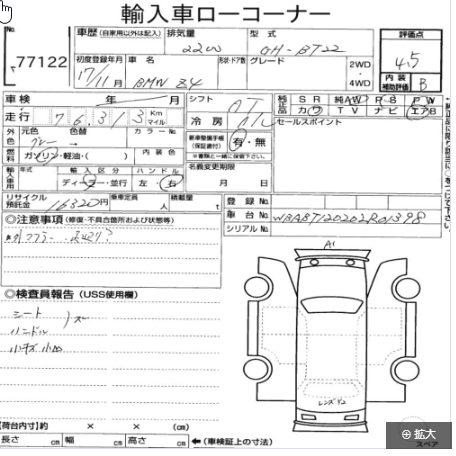 輸入車ローコーナー
No. 77122
車歴 (自家用以外は記入) 排気量 2200 型式 GH-BT22 評価点 4.5
初度登録年月 17/11月 車名 BMW Z4 形状・ドア数 グレード 2WD・4WD 内装補助評価 B
車検 年 月 シフト AT 純正品 SR 純AW RS PW
走行 76313 Km マイル 冷房 カワ TV ナビ エアB
外色 元色 色替 カラーNo. 新車整備手帳(保証書付) 有・無 セールスポイント
グレー →
燃料 ガソリン・軽油・( ) 内装色 ※書類と一緒に保管下さい。
輸入車用 年式 輸入区分 ハンドル 名義変更期限
ディーラー・並行 左・右 月 日
リサイクル預託金 16320円 乗車定員 人 積載量 t 登録No.
◎注意事項 (修復・不具合箇所および状態等) 車台No. WBABT120202
シリアルNo.
マフラー
A1
◎検査員報告 (USS使用欄)
シート
ハンドル
小キズ 小凹
レンズ
【荷台内寸】約 × × (cm)
長さ cm 幅 cm 高さ cm ←(車検証上の寸法)
拡大
スペア